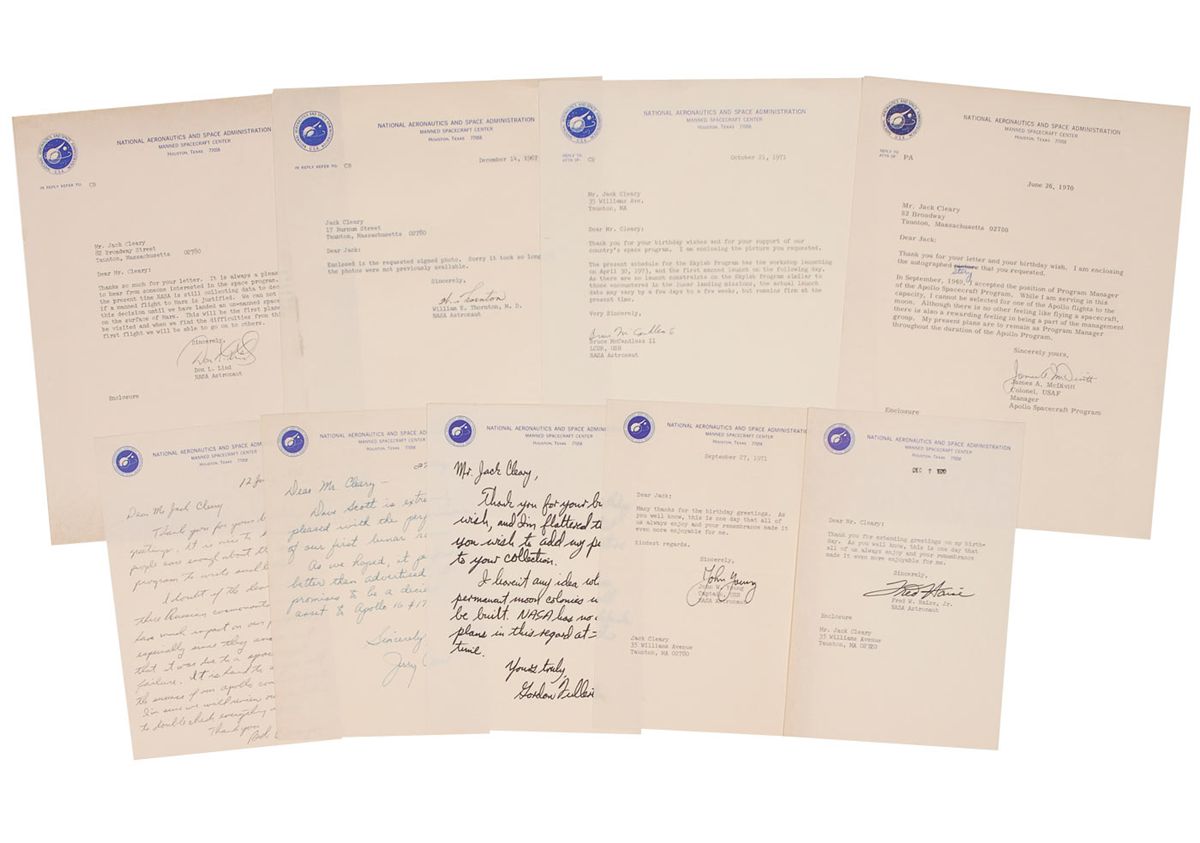 NATIONAL AERONAUTICS AND SPACE ADMINISTRATION
MANNED SPACECRAFT CENTER
HOUSTON, TEXAS 77058
IN REPLY REFER TO: CB
Mr. Jack Cleary
82 Broadway Street
Taunton, Massachusetts 02780
Dear Mr. Cleary:
Thanks so much for your letter. It is always a pleas
to hear from someone interested in the space program.
the present time NASA is still collecting data to dec
if a manned flight to Mars is justified. We can not
this decision until we have landed an un-manned space
on the surface of Mars. This will be the first plane
be visited and when we find the difficulties from thi
first flight we will be able to go on to others.
Sincerely,
Don L. Lind
NASA Astronaut
Enclosure
NATIONAL AERONAUTICS AND SPACE ADMINISTRATION
MANNED SPACECRAFT CENTER
HOUSTON, TEXAS 77058
IN REPLY REFER TO: CB
December 14, 1967
Jack Cleary
17 Burnum Street
Taunton, Massachusetts 02780
Dear Jack:
Enclosed is the requested signed photo. Sorry it took so long
the photos were not previously available.
Sincerely,
W. Thornton
William E. Thornton, M. D.
NASA Astronaut
NATIONAL AERONAUTICS AND SPACE ADMINISTRATION
MANNED SPACECRAFT CENTER
HOUSTON, TEXAS 77058
REPLY TO
ATTN OF: CB
October 21, 1971
Mr. Jack Cleary
35 Williams Ave.
Taunton, MA
Dear Mr. Cleary:
Thank you for your birthday wishes and for your support of our
country's space program. I am enclosing the picture you requested.
The present schedule for the Skylab Program has the workshop launching
on April 30, 1973, and the first manned launch on the following day.
As there are no launch constraints on the Skylab Program similar to
those encountered in the lunar landing missions, the actual launch
date may vary by a few days to a few weeks, but remains firm at the
present time.
Very Sincerely,
Bruce McCandless II
Bruce McCandless II
LCDR, USN
NASA Astronaut
NATIONAL AERONAUTICS AND SPACE ADMINISTRATION
MANNED SPACECRAFT CENTER
HOUSTON, TEXAS 77058
REPLY TO
ATTN OF: PA
June 26, 1970
Mr. Jack Cleary
82 Broadway
Taunton, Massachusetts 02780
Dear Jack:
Thank you for your letter and your birthday wish. I am enclosing
the autographed picture that you requested.
In September, 1969, I accepted the position of Program Manager
of the Apollo Spacecraft Program. While I am serving in this
capacity, I cannot be selected for one of the Apollo flights to the
moon. Although there is no other feeling like flying a spacecraft,
there is also a rewarding feeling in being a part of the management
group. My present plans are to remain as Program Manager
throughout the duration of the Apollo Program.
Sincerely yours,
James A. McDivitt
James A. McDivitt
Colonel, USAF
Manager
Apollo Spacecraft Program
Enclosure
NATIONAL AERONAUTICS AND SPACE AD
MANNED SPACECRAFT CENTER
HOUSTON, TEXAS 77058
Dear Mr Jack Cleary
Thank you for your b
greetings. It is nice to
people care enough about th
program to write
I doubt if the
three Russian cosmonauts
have much impact on our
especially since they
that it was due to a spac
failure. It is hard to
the success of our apollo
I'm sure we will review our
to double check everything
Thank you
Bob
NATIONAL AERONAUTICS AND SPACE
MANNED SPACECRAFT CENTER
HOUSTON, TEXAS 77058
Dear Mr. Cleary -
Dave Scott is extre
pleased with the
of our first lunar
As we hoped, it
better than advertised
promises to be a deci
asset to Apollo 16 & 17
Sincerely,
Jerry
NATIONAL AERONAUTICS AND SPACE A
MANNED SPACECRAFT CENTER
HOUSTON, TEXAS 77058
Mr. Jack Cleary,
Thank you for your bi
wish, and I'm flattered th
you wish to add my
to your collection.
I haven't any idea
permanant moon colonies
be built. NASA has no
plans in this regard at
time.
Yours truly,
Gordon Fuller
NATIONAL AERONAUTICS AND SPACE ADMINISTR
MANNED SPACECRAFT CENTER
HOUSTON, TEXAS 77058
September 27, 1971
Dear Jack:
Many thanks for the birthday greetings. As
you well know, this is one day that all of
us always enjoy and your remembrance made it
even more enjoyable for me.
Kindest regards.
Sincerely,
John Young
John W. Young
Captain, USN
NASA Astronaut
Jack Cleary
35 Williams Avenue
Taunton, MA 02780
NATIONAL AERONAUTICS AND SPACE ADMINISTRATION
MANNED SPACECRAFT CENTER
HOUSTON, TEXAS 77058
Dear Mr. Cleary:
Thank you for extending greetings on my birth-
day. As you well know, this is one day that
all of us always enjoy and your remembrance
made it even more enjoyable for me.
Sincerely,
Fred Haise
Fred W. Haise, Jr.
NASA Astronaut
Enclosure
Mr. Jack Cleary
35 Williams Avenue
Taunton, MA 02780